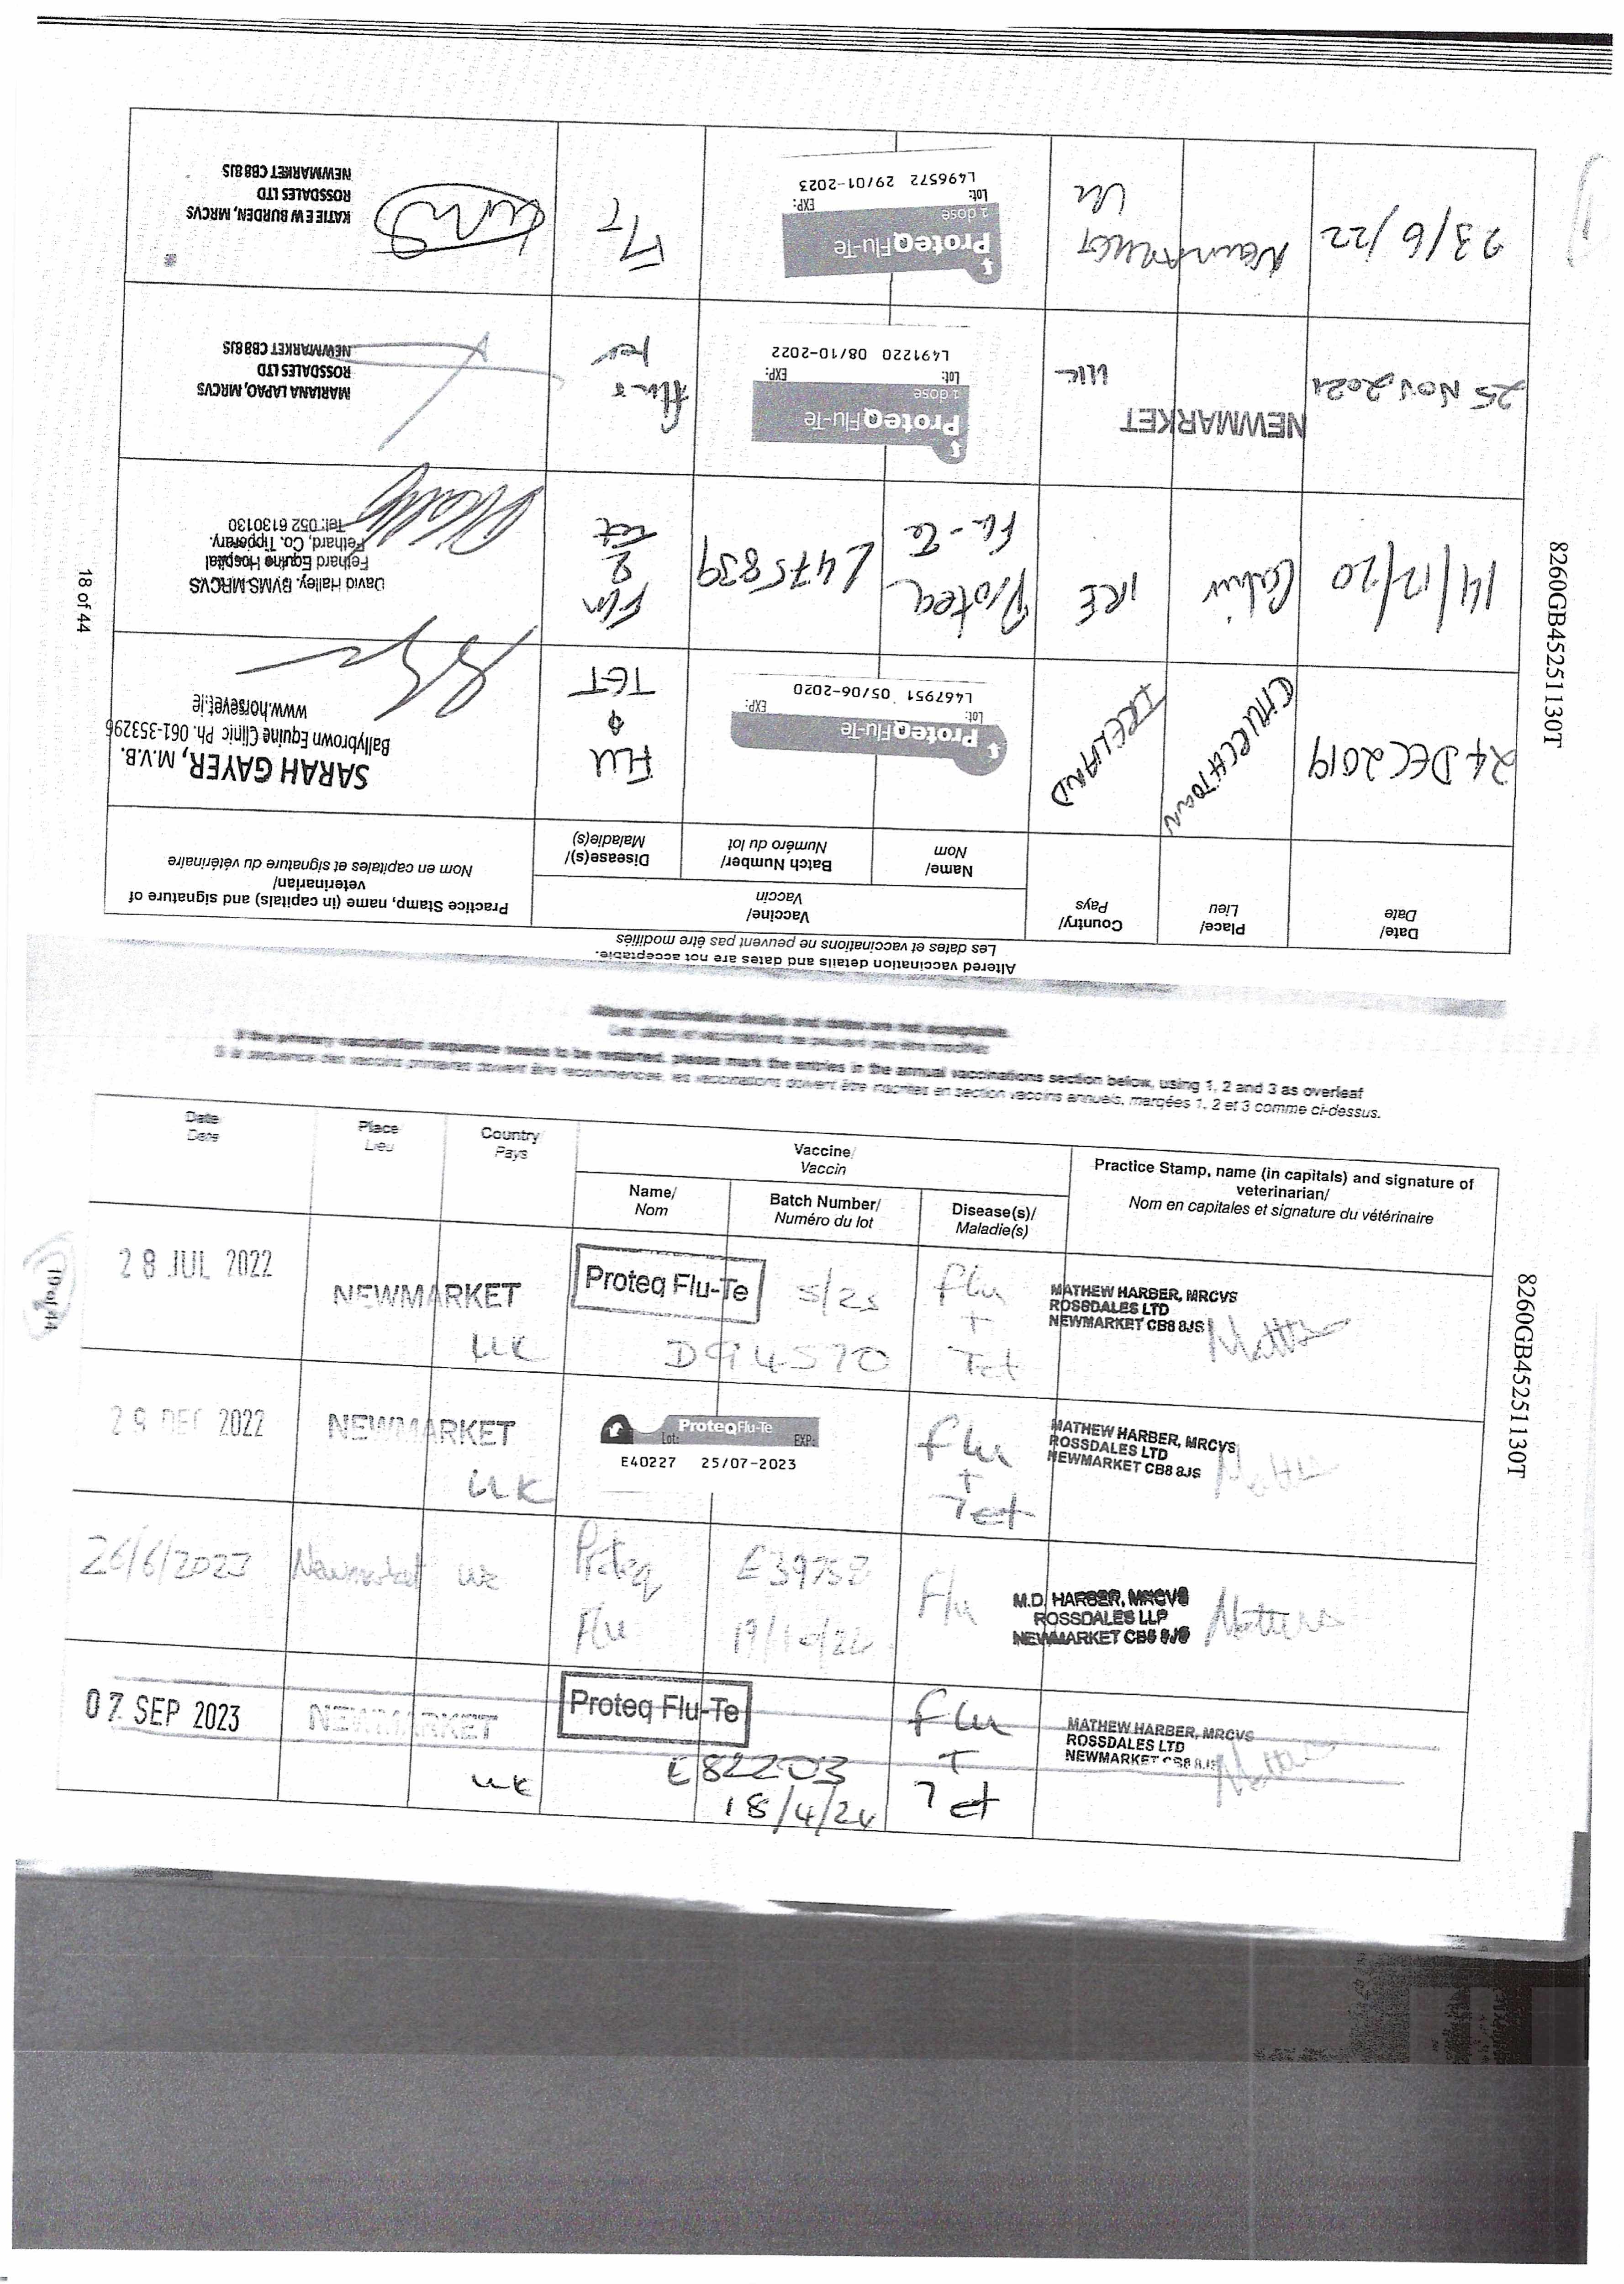 Altered vaccination details and dates are not acceptable.
Les dates et vaccinations ne peuvent pas être modifiés
Date/
Date
Place/
Lieu
Country/
Pays
Vaccine/
Vaccin
Name/
Nom
Batch Number/
Numéro du lot
Disease(s)/
Maladie(s)
Practice Stamp, name (in capitals) and signature of
veterinarian/
Nom en capitales et signature du vétérinaire
24 DEC 2019
CHURCHTOWN
IRELAND
ProteqFlu-Te
Lot: EXP:
L467951 05/06-2020
FLU
&
TET
SARAH GAYER, M.V.B.
Ballybrown Equine Clinic Ph. 061-353296
www.horsevet.ie
14/12/20
Cahir
IRE
Proteq
Flu-Te
L475839
Flu
&
Tet
David Halley. BVMS MRCVS
Fethard Equine Hospital
Fethard, Co. Tipperary.
Tel: 052 6130130
25 NOV 2021
NEWMARKET
UK
ProteqFlu-Te
1 dose
Lot: EXP:
L491220 08/10-2022
Flu +
MARIANA LAPAO, MRCVS
ROSSDALES LTD
NEWMARKET CB8 8JS
23/6/22
UK
ProteqFlu-Te
1 dose
Lot: EXP:
L496572 29/01-2023
F/T
KATIE E W BURDEN, MRCVS
ROSSDALES LTD
NEWMARKET CB8 8JS
18 of 44
8260GB45251130T
Altered vaccination details and dates are not acceptable.
Les dates et vaccinations ne peuvent pas être modifiés
If the primary vaccination sequence needs to be restarted, please mark the entries in the annual vaccinations section below, using 1, 2 and 3 as overleaf
Si la séquence des vaccins primaires doivent être recommencée, les vaccinations doivent être inscrites en section vaccins annuels, marqées 1, 2 et 3 comme ci-dessus.
Date/
Date
Place/
Lieu
Country/
Pays
Vaccine/
Vaccin
Name/
Nom
Batch Number/
Numéro du lot
Disease(s)/
Maladie(s)
Practice Stamp, name (in capitals) and signature of
veterinarian/
Nom en capitales et signature du vétérinaire
28 JUL 2022
NEWMARKET
UK
Proteq Flu-Te
5/23
D94570
Flu
+
Tet
MATHEW HARBER, MRCVS
ROSSDALES LTD
NEWMARKET CB8 8JS
DEC 2022
NEWMARKET
UK
ProteqFlu-Te
Lot: EXP:
E40227 25/07-2023
Flu
+
Tet
MATHEW HARBER, MRCVS
ROSSDALES LTD
NEWMARKET CB8 8JS
26/6/2023
Newmarket
UK
Proteq
Flu
Flu
M.D. HARBER, MRCVS
ROSSDALES LLP
NEWMARKET CB8 8JS
07 SEP 2023
NEWMARKET
UK
Proteq Flu-Te
E82203
18/4/24
Flu
+
Tet
MATHEW HARBER, MRCVS
ROSSDALES LTD
NEWMARKET CB8 8JS
19 of 44
8260GB45251130T